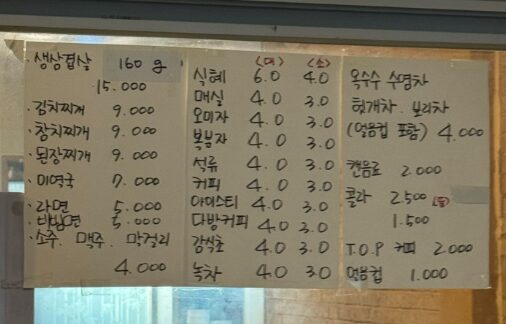 생삼겹살 160 g
15.000
· 김치찌개 9.000
· 참치찌개 9.000
· 된장찌개 9.000
· 미역국 7.000
· 라면 5.000
· 비빔면 5.000
· 소주. 맥주. 막걸리
4.000
(대) (소)
식혜 6.0 4.0
매실 4.0 3.0
오미자 4.0 3.0
복분자 4.0 3.0
석류 4.0 3.0
커피 4.0 3.0
아이스티 4.0 3.0
다방커피 4.0 3.0
감식초 4.0 3.0
녹차 4.0 3.0
옥수수 수염차
헛개차. 보리차
(얼음컵 포함) 4.000
캔음료 2.000
콜라 2.500
1.500
T.O.P 커피 2.000
얼음컵 1.000